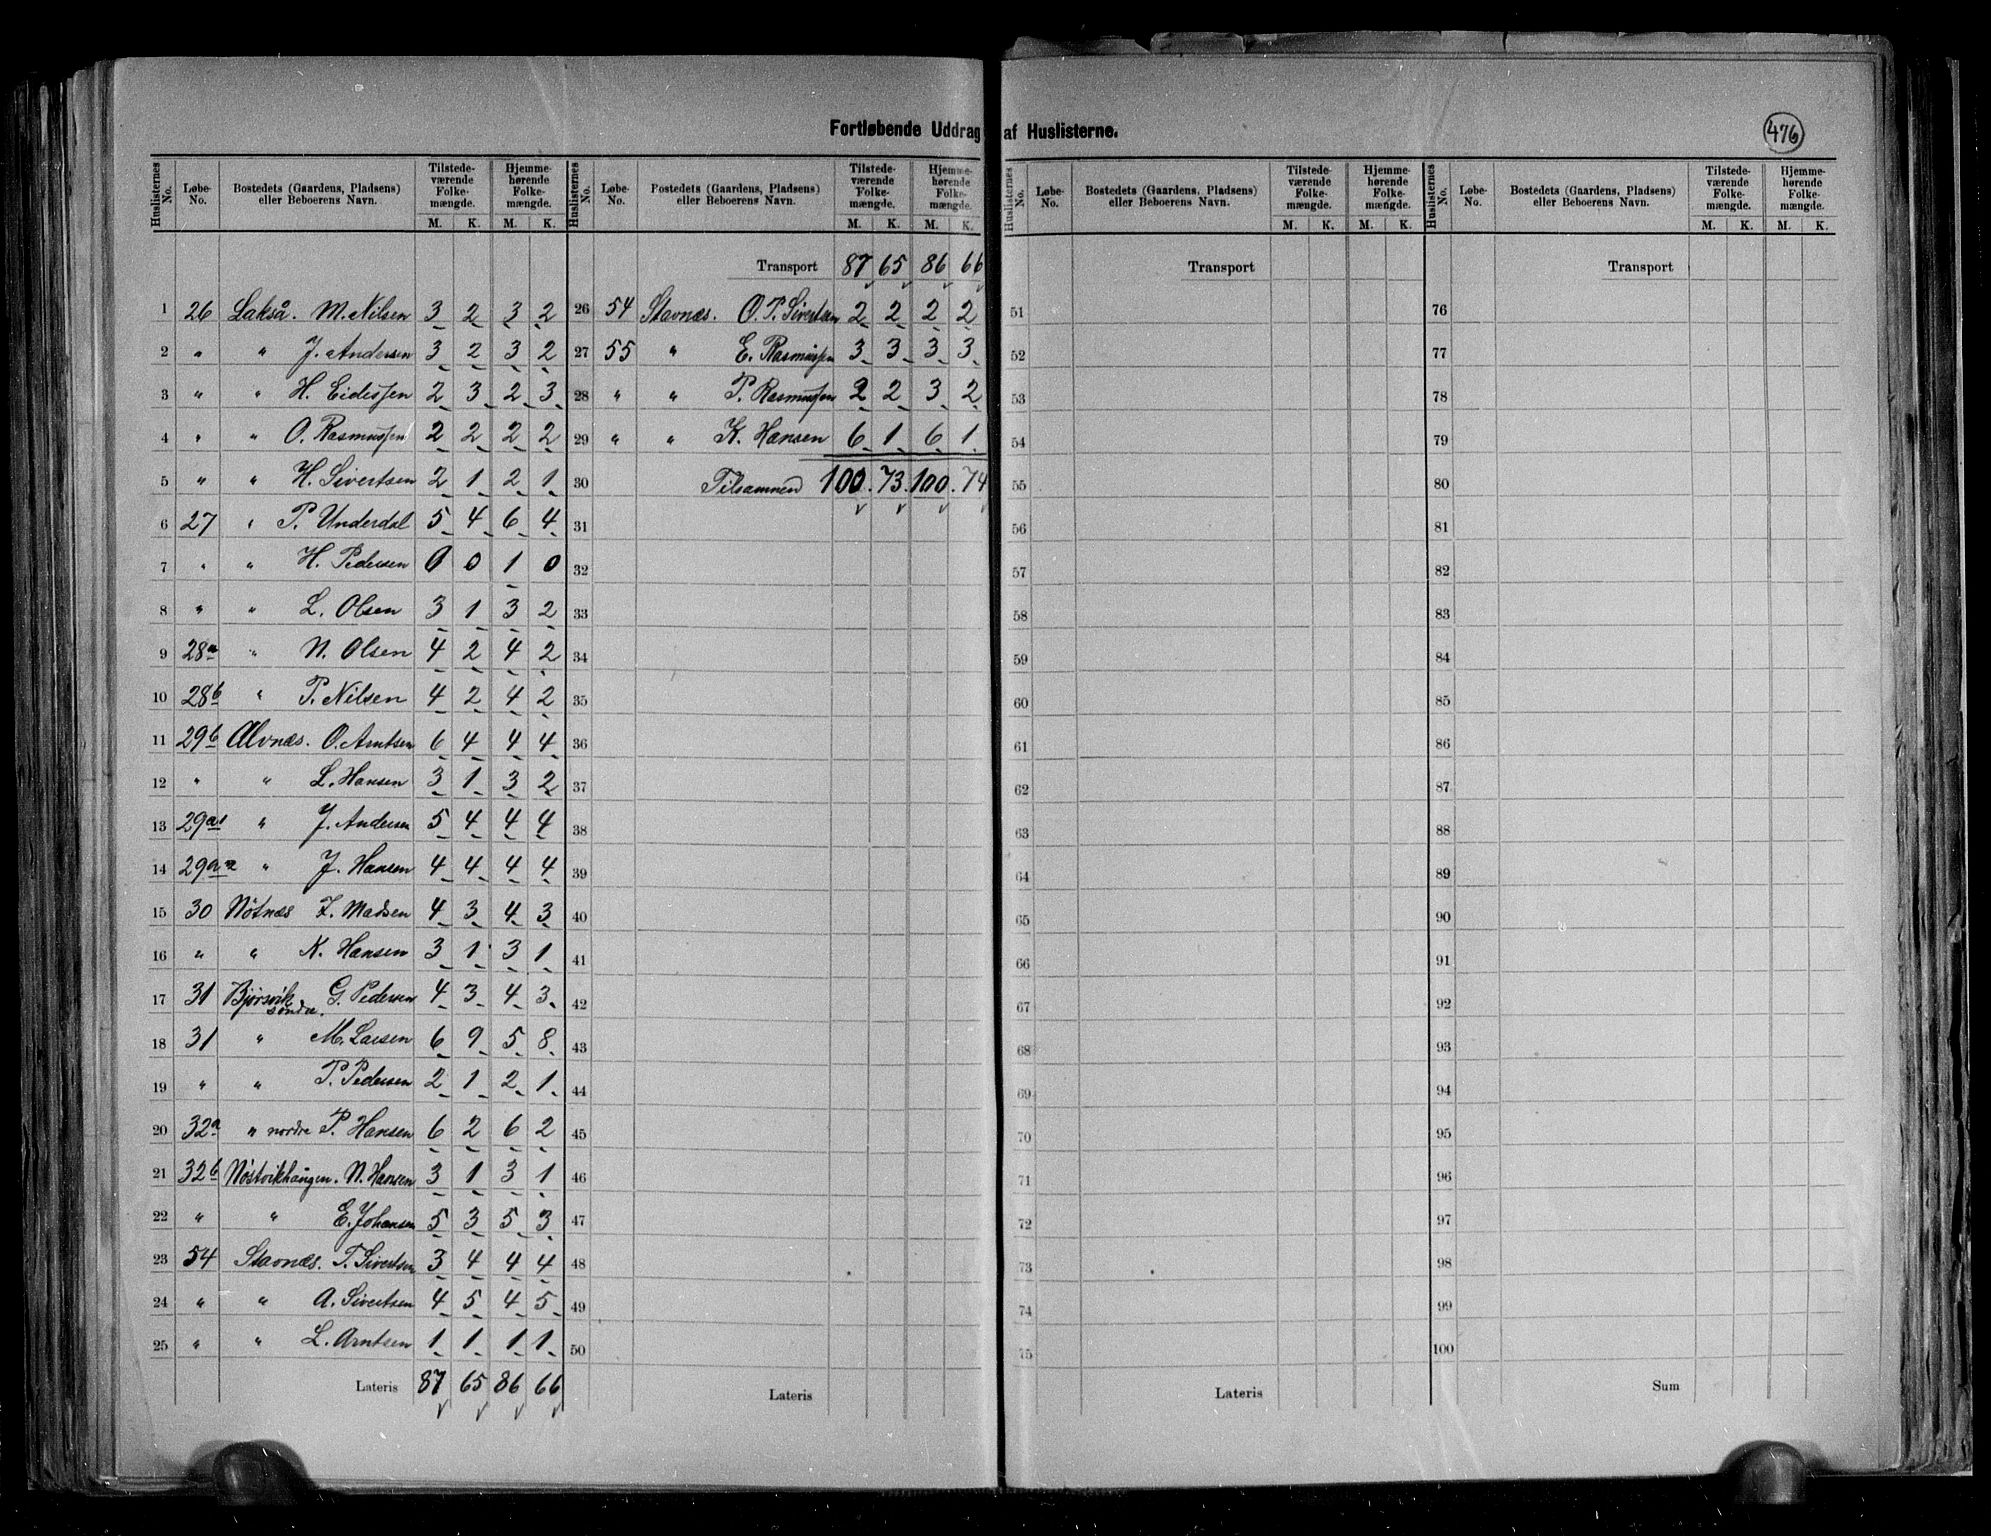 Fortløbende Uddrag af Huslisterne.
476
Huslisternes No. Løbe-No. Bostedets (Gaardens, Pladsens) eller Beboerens Navn. Tilstedeværende Folkemængde. M. K. Hjemmehørende Folkemængde. M. K.
1 26 Lakså. M. Nilsen 3 2 3 2
2 " " J. Andersen 3 2 3 2
3 " " H. Eidessen 2 3 2 3
4 " " O. Rasmussen 2 2 2 2
5 " " H. Sivertsen 2 1 2 1
6 27 " P. Underdal 5 4 6 4
7 " " H. Pedersen 0 0 1 0
8 " " L. Olsen 3 1 3 2
9 28a " N. Olsen 4 2 4 2
10 28b " P. Nilsen 4 2 4 2
11 29b Alvnæs. O. Arntsen 6 4 4 4
12 " " L. Hansen 3 1 3 2
13 29a1 " J. Andersen 5 4 4 4
14 29a2 " J. Hansen 4 4 4 4
15 30 Nötnæs Z. Madsen 4 3 4 3
16 " " N. Hansen 3 1 3 1
17 31 Bjørsvik søndre. G. Pedersen 4 3 4 3
18 31 " M. Larsen 6 9 5 8
19 " " P. Pedersen 2 1 2 1
20 32a " nordre P. Hansen 6 2 6 2
21 32b Nöstvikhaugen. N. Hansen 3 1 3 1
22 " " E. Johansen 5 3 5 3
23 54 Stavnæs. T. Sivertsen 3 4 4 4
24 " " A. Sivertsen 4 5 4 5
25 " " L. Arntsen 1 1 1 1
Lateris 87 65 86 66
Huslisternes No. Løbe-No. Postedets (Gaardens, Pladsen) eller Beboerens Navn. Tilstedeværende Folkemængde. M. K. Hjemmehørende Folkemængde. M. K.
Transport 87 65 86 66
26 54 Stavnæs. O. P. Sivertsen 2 2 2 2
27 55 " E. Rasmussen 3 3 3 3
28 " " P. Rasmussen 2 2 3 2
29 " " K. Hansen 6 1 6 1
30 Tilsammen 100 73 100 74
31
32
33
34
35
36
37
38
39
40
41
42
43
44
45
46
47
48
49
50
Lateris
Huslisternes No. Løbe-No. Bostedets (Gaardens, Pladsens) eller Beboerens Navn. Tilstedeværende Folkemængde. M. K. Hjemmehørende Folkemængde. M. K.
Transport
51
52
53
54
55
56
57
58
59
60
61
62
63
64
65
66
67
68
69
70
71
72
73
74
75
Lateris
Huslisternes No. Løbe-No. Bostedets (Gaardens, Pladsens) eller Beboerens Navn. Tilstedeværende Folkemængde. M. K. Hjemmehørende Folkemængde. M. K.
Transport
76
77
78
79
80
81
82
83
84
85
86
87
88
89
90
91
92
93
94
95
96
97
98
99
100
Sum